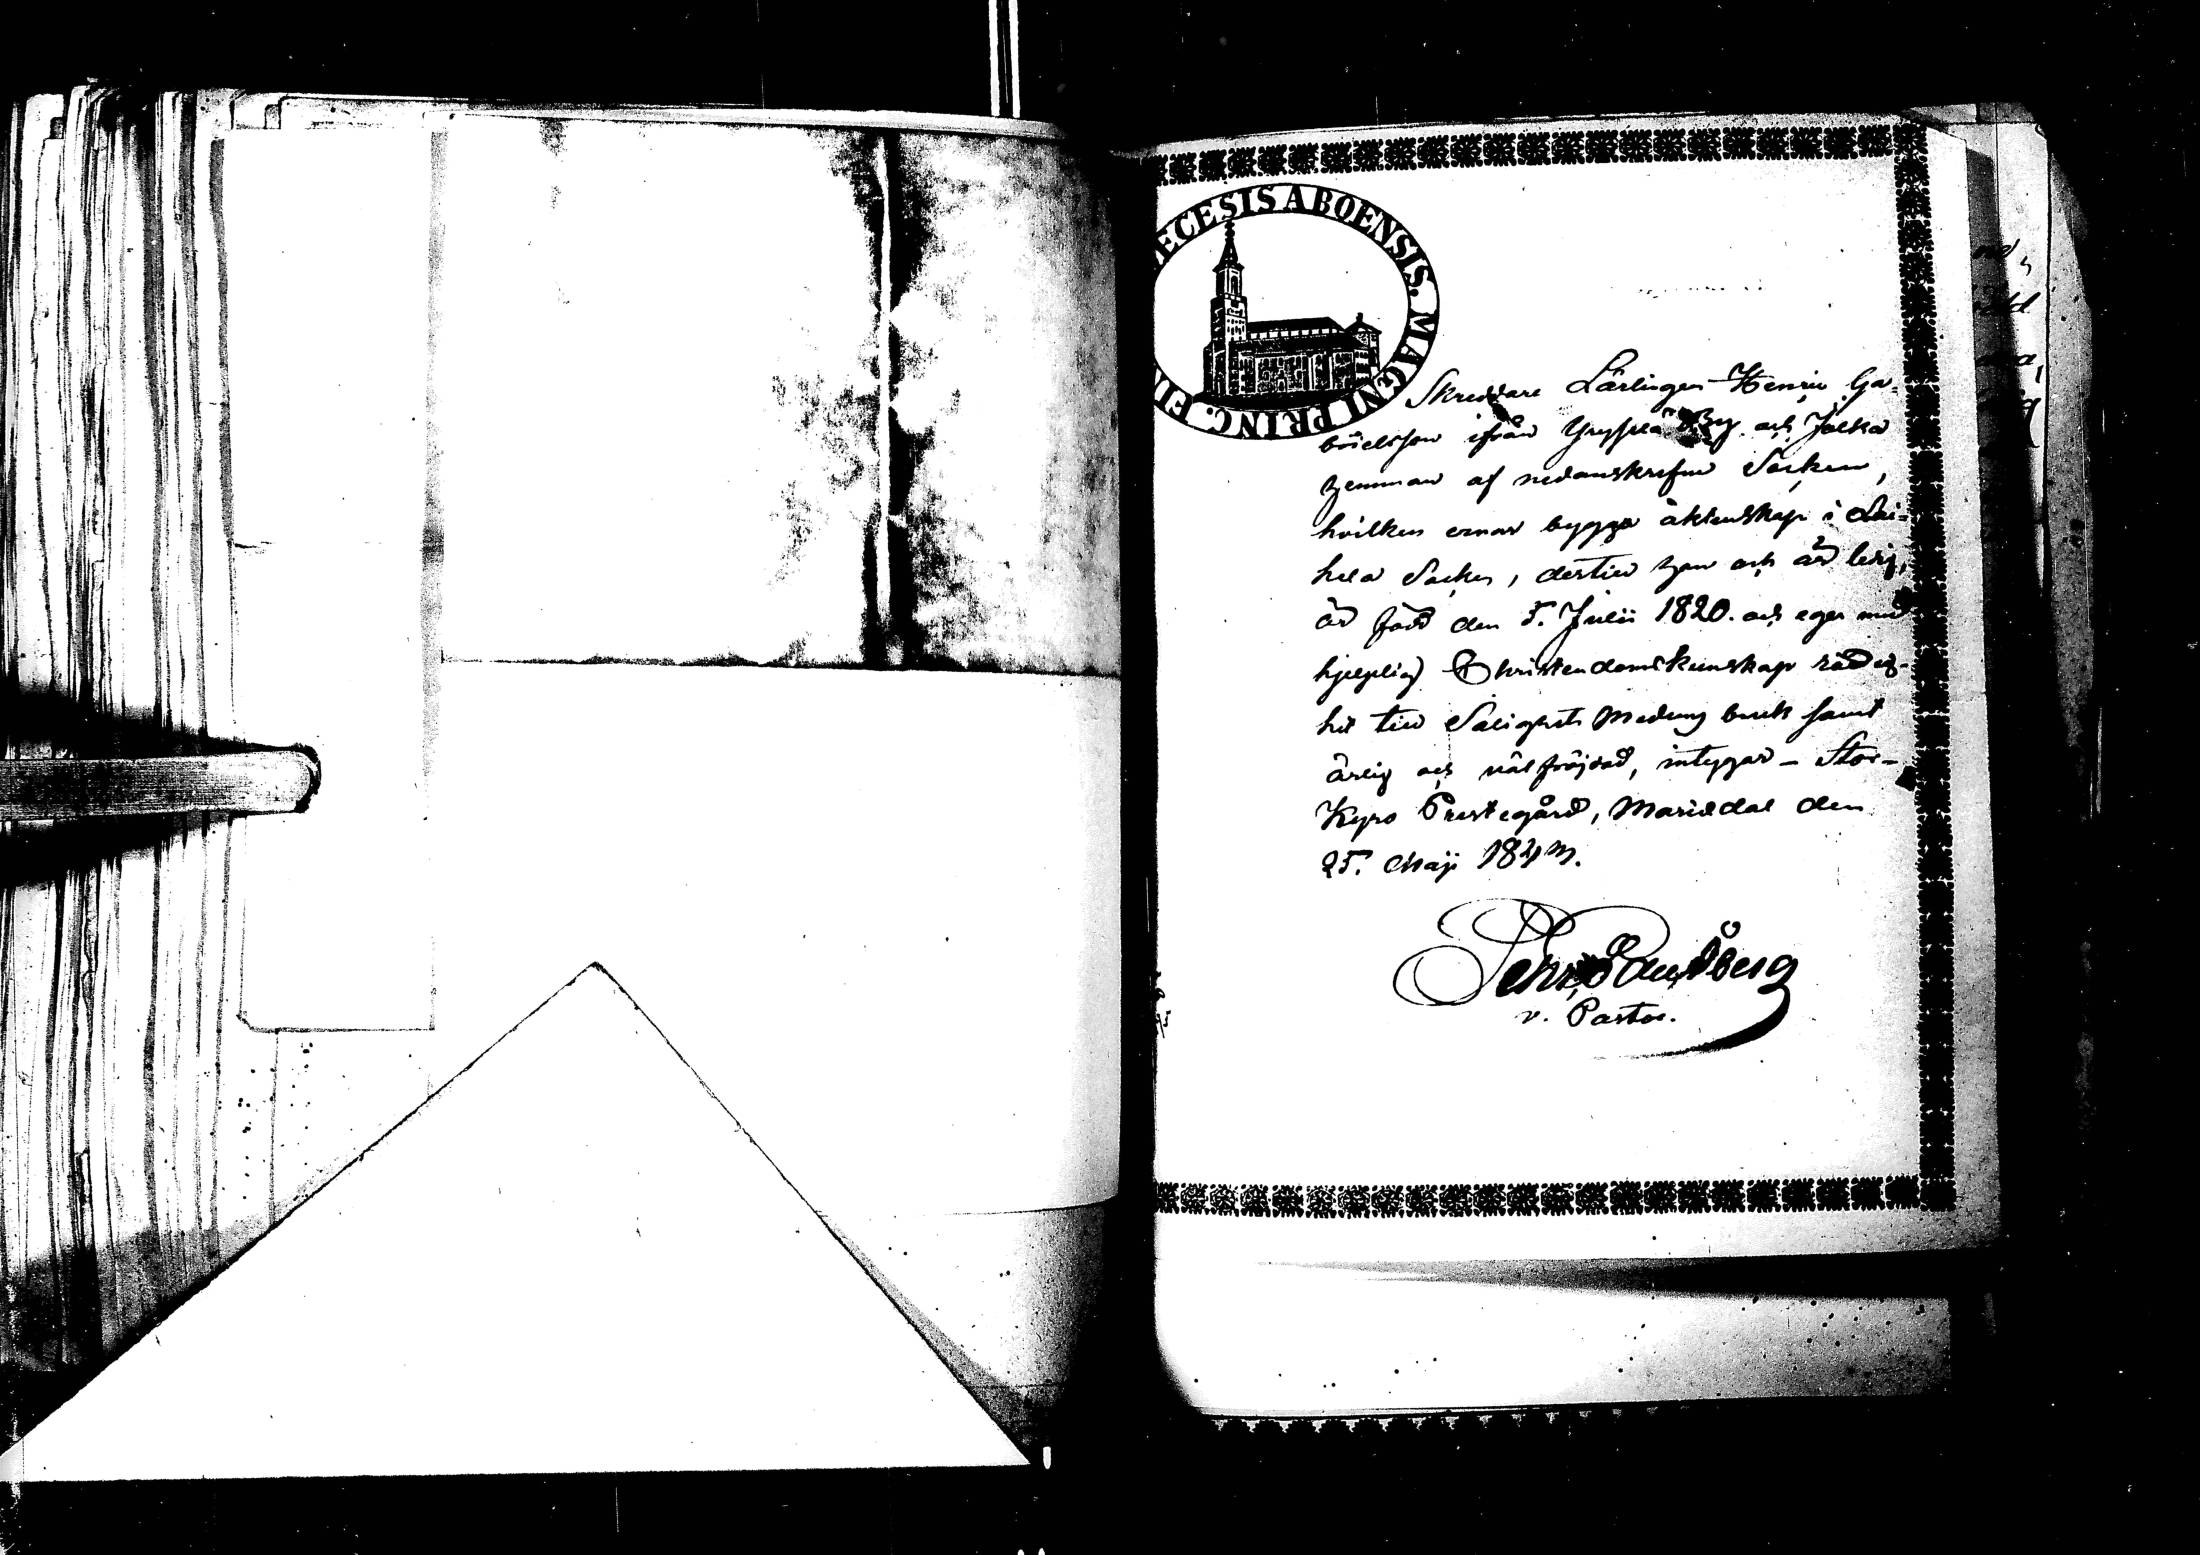 ECESIS ABOENSIS. MAGNI PRINC. FI
Skreddare Lärlingen Henric Ga-
brielsson ifrån Yryselä By och Jålka
hemman af nedanskrefne Socken,
hvilken ernar bygga äktenskap i Lai-
hela Socken, dertill han och är ledig,
är född den 5. Julii 1820. och eger med
hjelplig Christendomskunskap
het till Salighets Medlens bruk samt
ärlig och välfräjdad, intygar - Stor-
Kyro Prestegård, Mariedal den
25. Maji
v. Pastor.